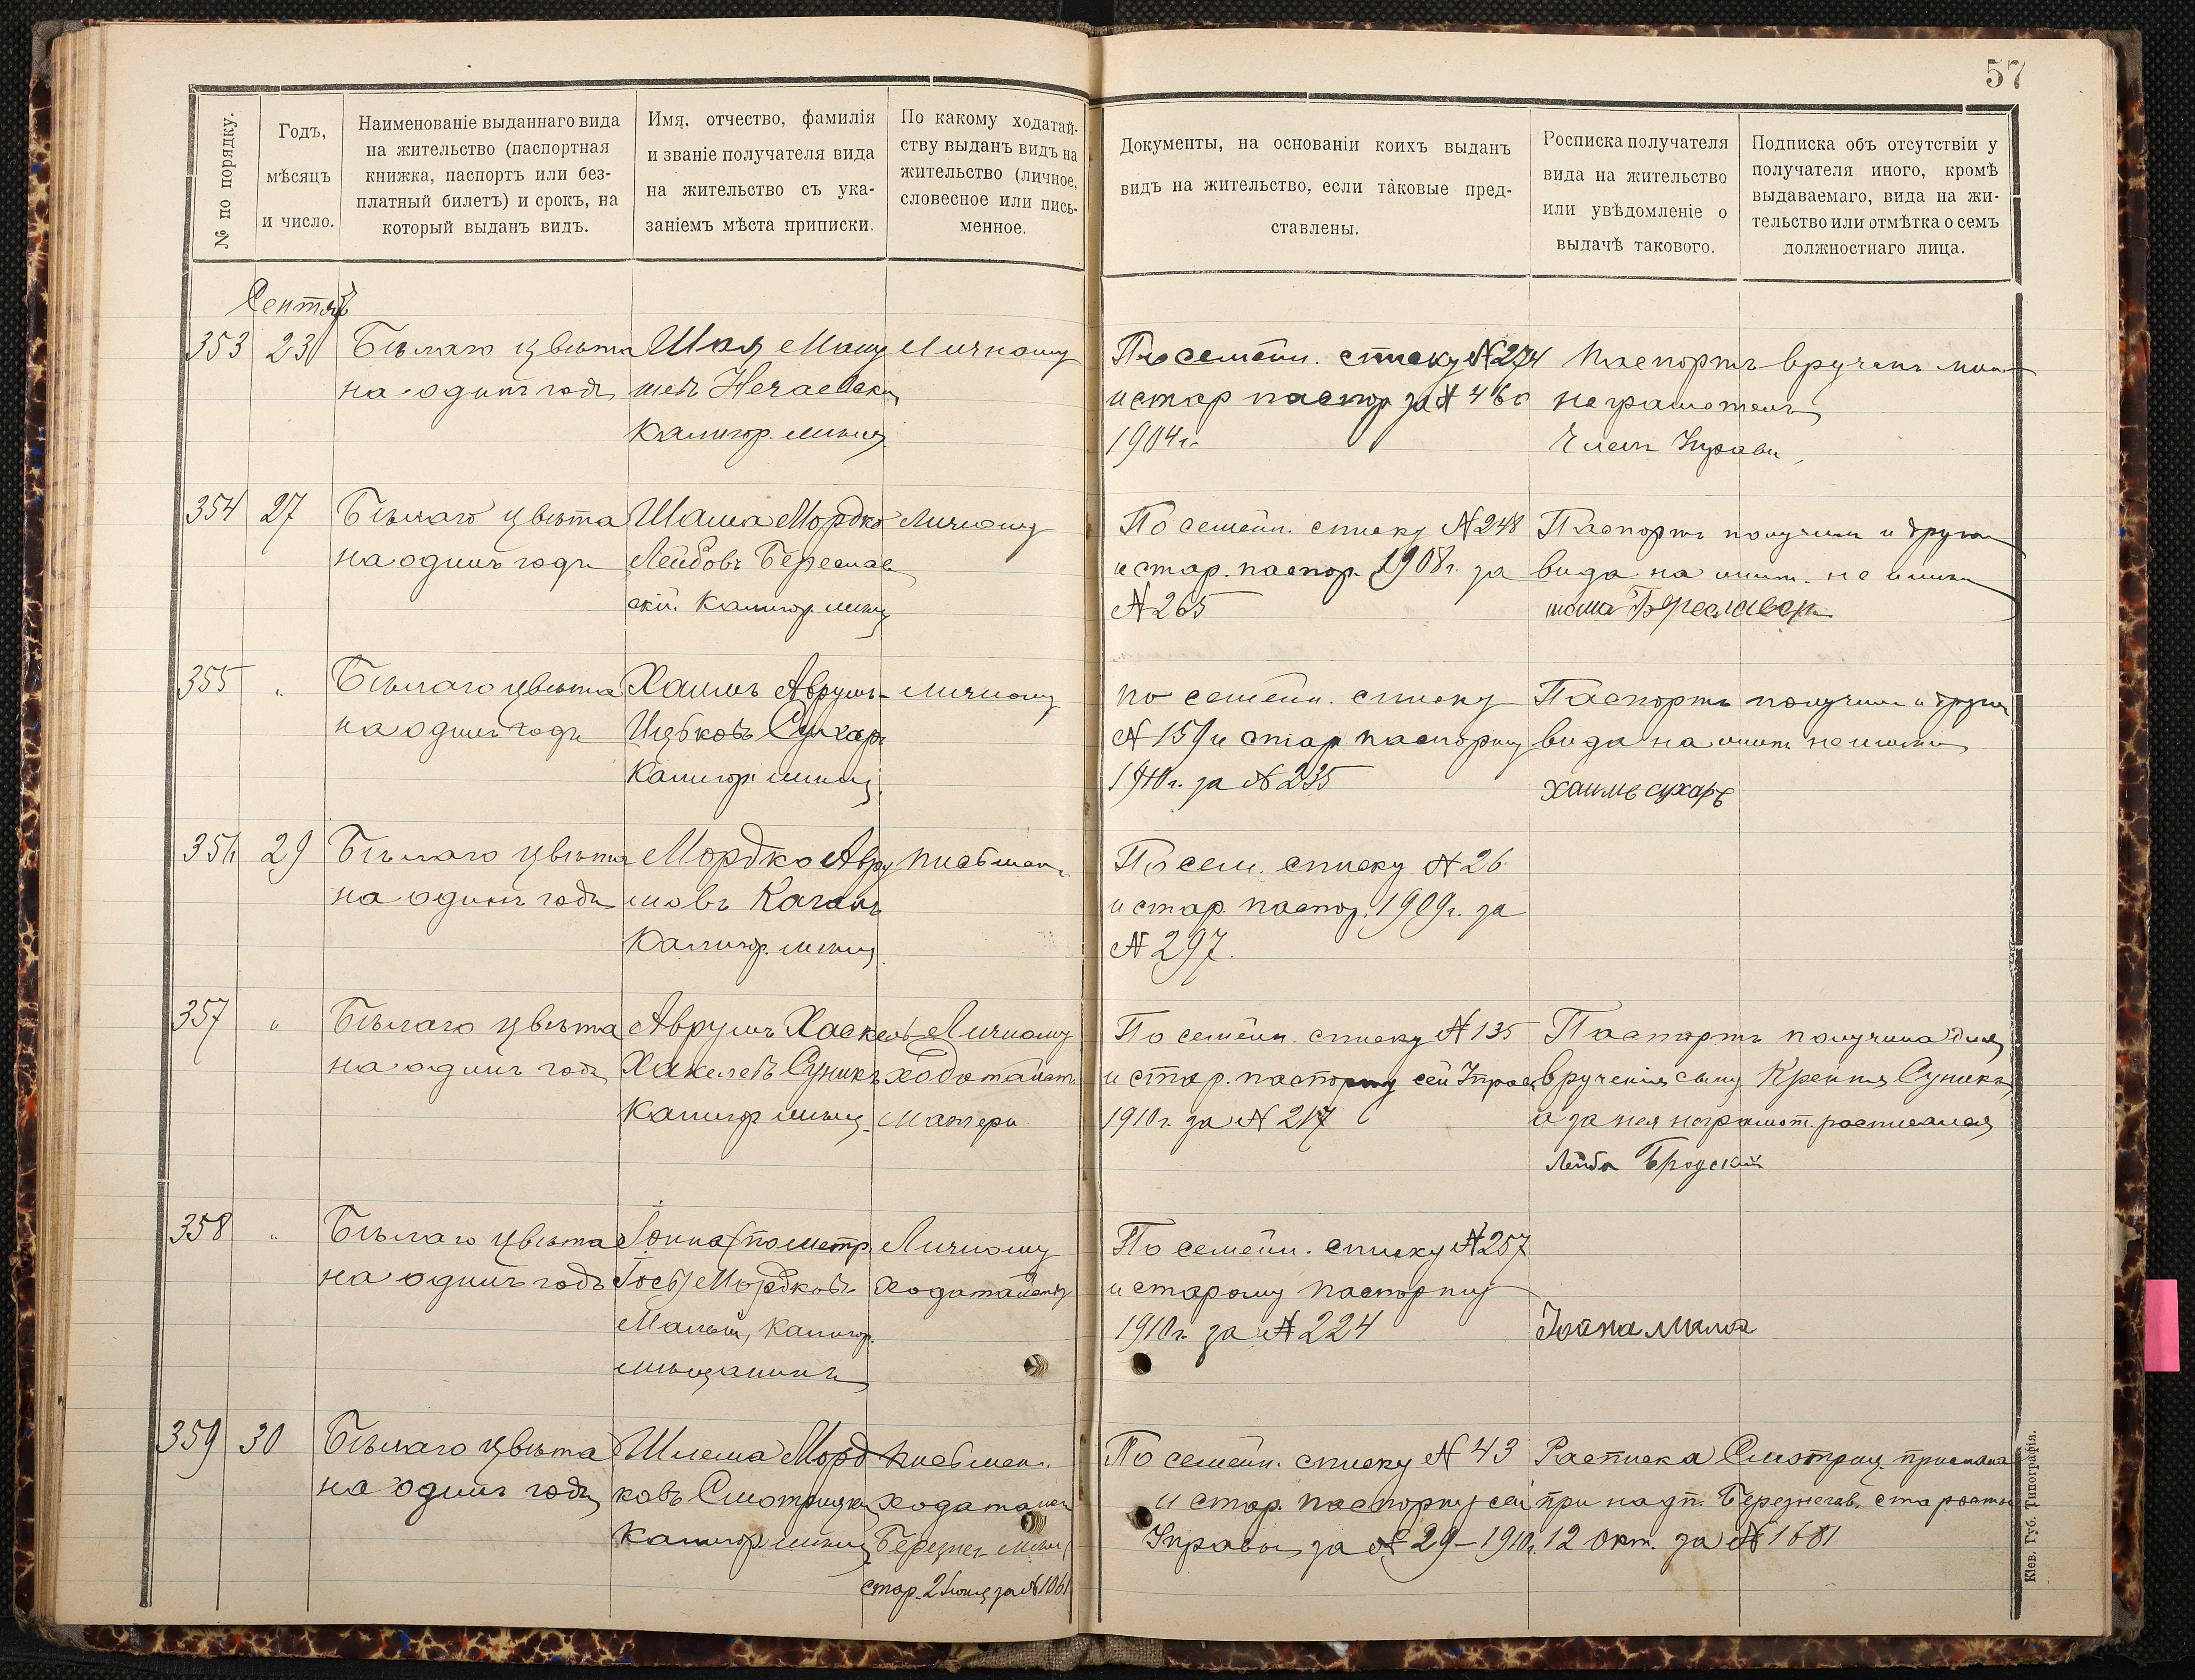 57
№ по порядку.
Годъ,
мѣсяцъ
и число.
Наименованіе выданнаго вида
на жительство (паспортная
книжка, паспортъ или без-
платный билетъ) и срокъ, на
который выданъ видъ.
Имя, отчество, фамилія
и званіе получателя вида
на жительство съ ука-
заніемъ мѣста приписки.
По какому ходатай-
ству выданъ видъ на
жительство (личное,
словесное или пись-
менное.
Документы, на основаніи коихъ выданъ
видъ на жительство, если таковые пред-
ставлены.
Росписка получателя
вида на жительство
или увѣдомленіе о
выдачѣ такового.
Подписка объ отсутствіи у
получателя иного, кромѣ
выдаваемаго, вида на жи-
тельство или отмѣтка о семъ
должностнаго лица.
353 23
Бѣлаго цвѣта
на одинъ годъ
Личному
По семейн. списку № 274
и стар паспор за № 460
1904 г.
Паспортъ врученъ
неграмотенъ
Членъ Управы
354 27
Бѣлаго цвѣта
на одинъ годъ
Шама Мордко
Лейбовъ Береслав
скій. Калигор. мѣщ
Личному
По семейн. списку № 248
и стар. паспор. 1908 г. за
№ 265
Паспортъ получилъ и другого
вида на жит. не имѣю
355 "
Бѣлаго цвѣта
на одинъ годъ
Хаимъ Аврумъ-
Ицковъ Сухаръ
Калигор. мѣщ.
Личному
По семейн. списку
№ 159 и стар паспорту
1910 г. за № 235
Паспортъ получилъ и другого
вида на жит. не имѣю
хаимъ сухаръ
356 29
Бѣлаго цвѣта
на одинъ годъ
Мордко Авру
мовъ Каганъ
Калигор. мѣщ.
Письмен.
По сем. списку № 26
и стар. паспор. 1909 г. за
№ 297.
357 "
Бѣлаго цвѣта
на одинъ годъ
Аврумъ Хаскель
Сушкъ
Калигор. мѣщ.
Личному
ходатайст.
матери
По семейн. списку № 135
и стар. паспорту сей Управ
1910 г. за № 217
Паспортъ получила для
врученія сыну
а за нея неграмот. росписался
Лейба Бродскій
358 "
Бѣлаго цвѣта
на одинъ годъ
Іонна (по метр.
Іось) Мордковъ
Малый, Калигор.
мѣщанинъ
Личному
ходатайству
По семейн. списку № 257
и старому паспорту
1910 г. за № 224
359 30
Бѣлаго цвѣта
на одинъ годъ
Шлема Морд
ковъ Смотрицкій
Калигор. мѣщ.
Письмен.
ходатай
стар. 2 Іюня за № 1061
По семейн. списку № 43
и стар. паспорту сей
Управы за № 29 – 1910 г.
Расписка Смотриц. прислана
при надп. Березнегов. старосты
12 Окт. за № 1681
Кіев. Губ. Типографія.